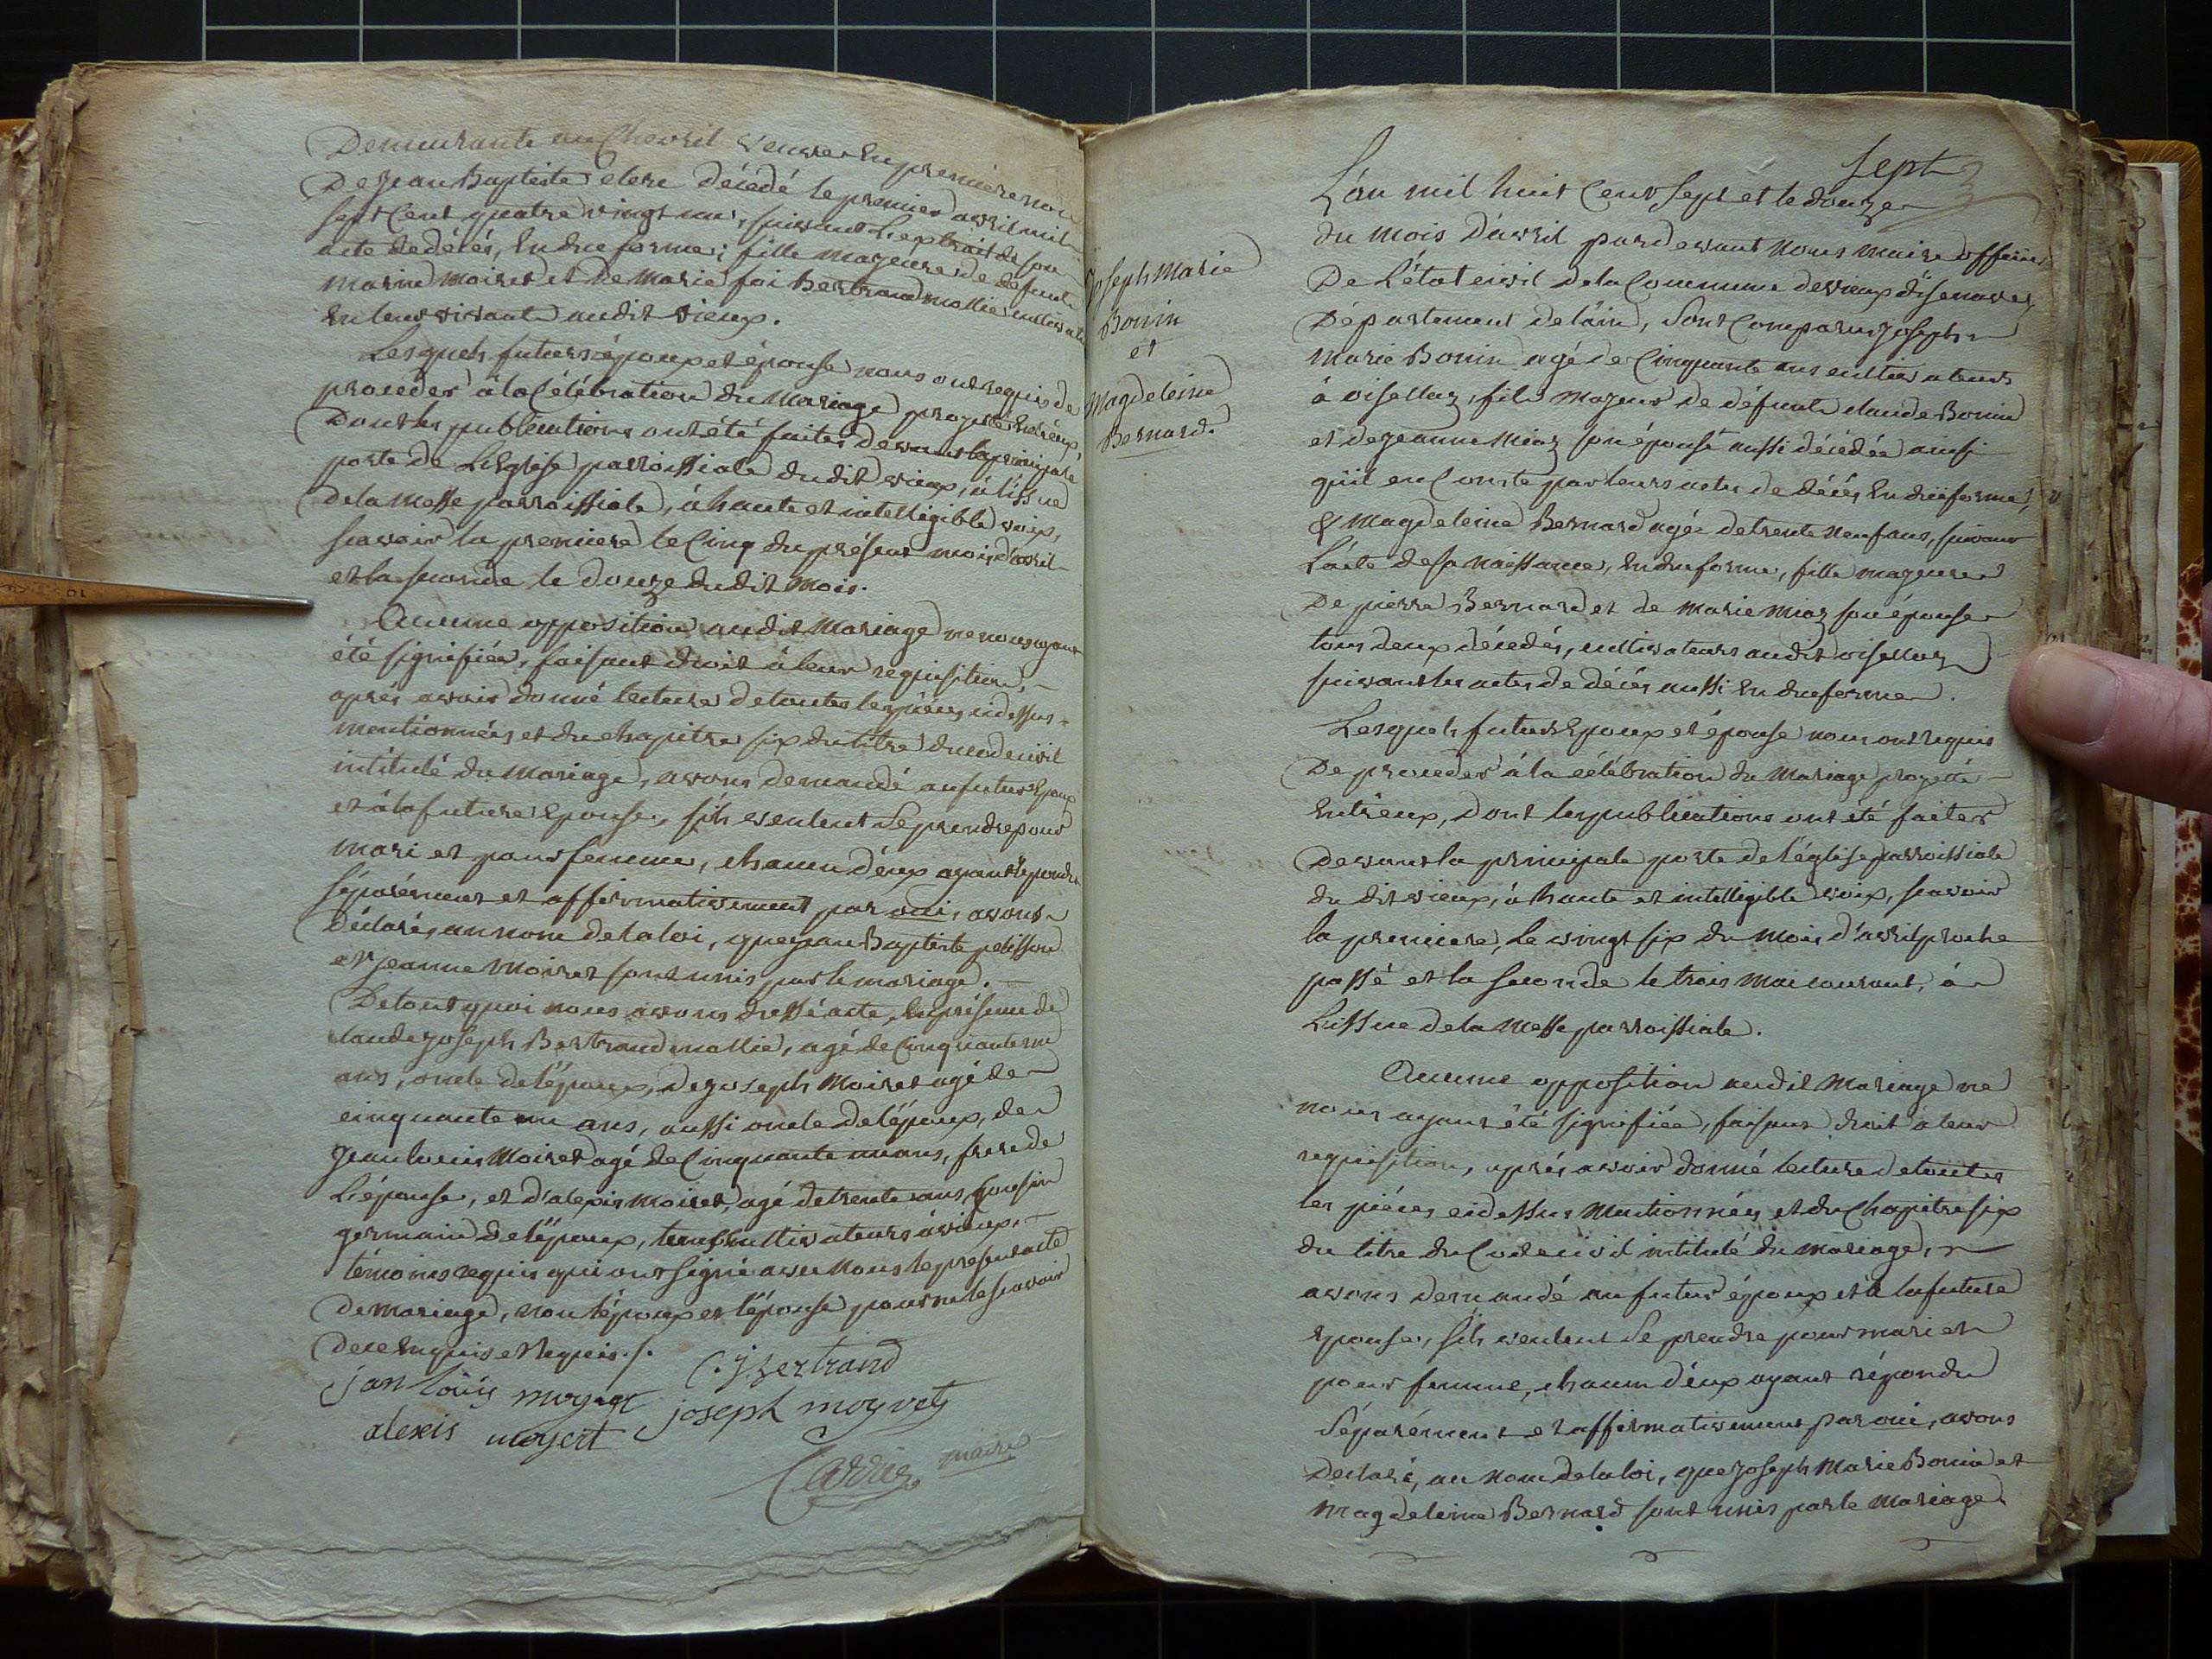 Demeurante au Chevril veuve en premiere
De jean Baptiste clere décédé le premier avril mil
sept Cent quatre vingt un, suivant L'extrait de son
acte de décés, En due forme; fille majeure de defunts
marin moiret et De Marie foi Bertrand mollie cultivate
En leur vivant audit vieux.
Lesquels futurs époux et épouse nous ont requis de
proceder à la Célébration du Mariage projetté Entr'eux,
Dont les publications ont été faites devant la principale
porte de L'Eglise parroissiale dudit vieux, à l'issue
de la Messe parroissiale, à haute et intelligible voix,
scavoir la premiere le Cinq du présent mois d'avril
et la seconde le douze dudit Mois.
Aucune opposition audit Mariage ne nous ayant
été signifiée, faisant droit à leur requisition,
aprés avoir donné lecture de toutes les piéces cidessus
mentionnées et du chapitre six du titre du code civil
intitulé du Mariage, avons demandé au futur Epoux
et à la future Epouse, s'ils veulent Se prendre pour
mari et pour femme, chacun d'eux ayant répondu
séparément et affirmativement par oui, avons
Déclaré, au nom de la loi, que jean Baptiste pelisson
et jeanne Moiret sont unis par le mariage.
De tout quoi nous avons dressé acte, En présence de
claude joseph Bertrand mollie, agé de Cinquante un
ans, oncle de l'époux, de joseph Moiret agé de
cinquante un ans, aussi oncle de l'époux, de
jean louis Moiret agé de Cinquante un ans, frere de
L'épouse, et d'alexis moiret, agé de trente ans, Cousin
germain de l'époux, tous Cultivateurs à vieux,
témoins requis qui ont signé avec Nous le present acte
de mariage, non l'époux et l'épouse pour ne le scavoir
De ce Enquis et Requis./.
jan loüis moyret C. j. bertrand
alexis moyert joseph moyret
Carrier maire
joseph Marie
Bonin
et
Magdeleine
Bernard.
sept
L'an mil huit Cent Sept et le douze
du Mois D'avril pardevant Nous Maire officier
De L'état civil de la Commune de vieux d'isenaves
Département de l'ain, Sont Comparus joseph
Marie Bonin agé de Cinquante ans cultivateur
à oisellaz, fils Majeur de défunts claude Bonin
et de jeanne Miaz son épouse aussi décédée ainsi
qu'il en Conste par leurs actes de décés En düe forme,
& Magdeleine Bernard agée de trente neuf ans, suivant
L'acte de sa naissance, En due forme, fille majeure
De pierre Bernard et de Marie Miaz son épouse
tous deux décedés, cultivateurs audit oisellaz
suivant les actes de décés aussi En due forme.
Lesquels futurs Epoux et épouse nous ont requis
De proceder à la célébration du Mariage projetté
Entr'eux, Dont les publications ont été faites
Devant la principale porte de l'église parroissiale
du dit vieux, à haute et intelligible voix, scavoir
la premiere, le vingt six du Mois d'avril proche
passé et la Seconde le trois Mai courant, à
L'issue de la Messe parroissiale.
Aucune opposition audit Mariage ne
nous ayant été signifiée, faisant droit à leur
requisition, aprés avoir donné lecture de toutes
les piéces cidessus Mentionnées et du Chapitre six
du titre du Code civil intitulé du Mariage,
avons demandé au futur époux et à la future
Epouse, s'ils veulent Se prendre pour mari et
pour femme, chacun d'eux ayant répondu
Séparément et affirmativement par oui, avons
Declaré, au nom de la loi, que joseph Marie Bonin et
Magdeleine Bernard sont unis par le Mariage.